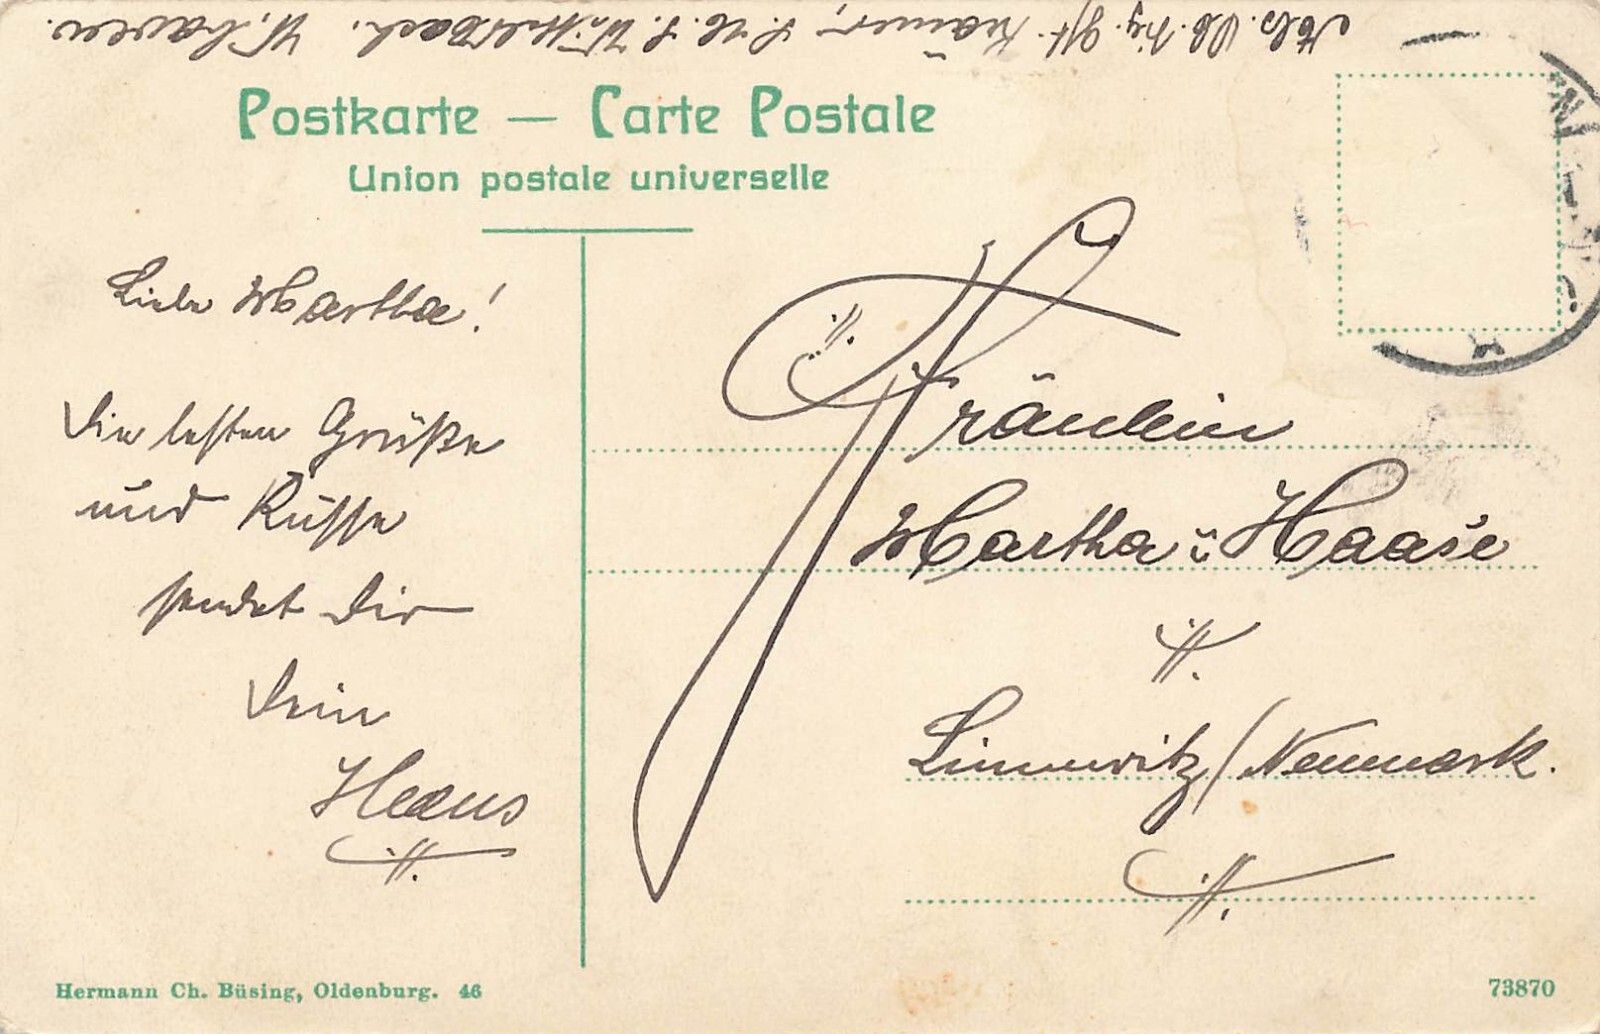 Postkarte — Carte Postale
Union postale universelle
Liebe Martha!
Die besten Grüße
und Küsse
sendet Dir
Dein
Hans
Fräulein
Martha Haase
Limmritz/Neumark.
S.M.S. Wittelsbach. W.haven.
Hermann Ch. Büsing, Oldenburg. 46
73870